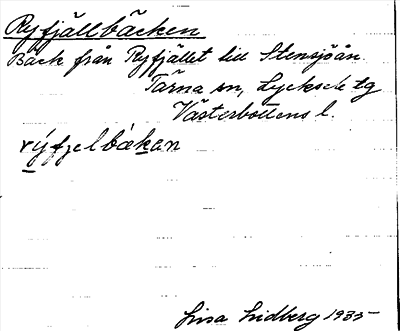 Ryfjällbäcken
Bäck från Ryfjället till Stensjöån.
Tärna sn, Lycksele tg
Västerbottens l.
rýfjelbäkan
Lisa Lidberg 1935